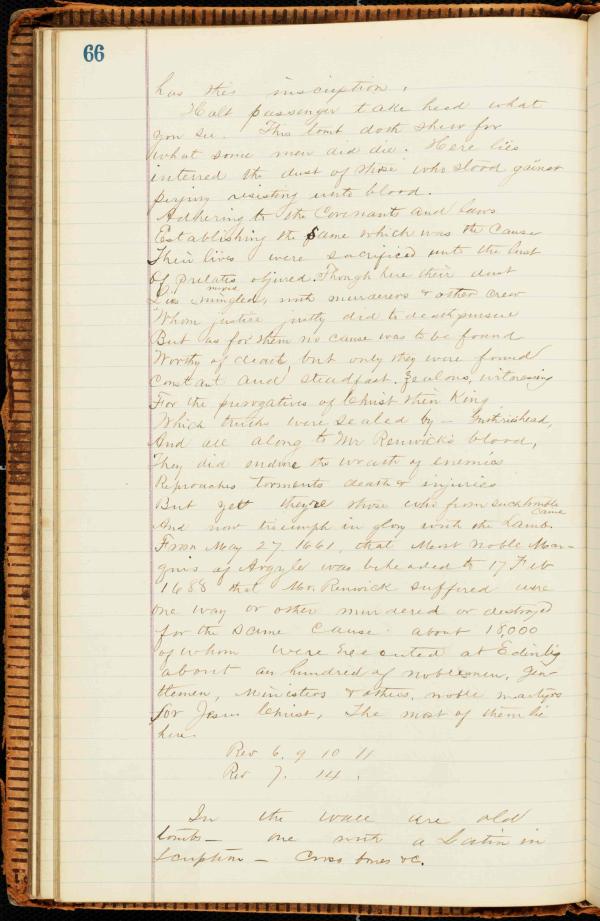 66
has this inscription.
Halt passenger take heed what
you see. This tomb doth shew for
what some men did die. Here lies
interred the dust of those who stood gainst
perjury resisting unto blood.
Adhering to the Covenants and laws
Establishing the same which was the cause
Their lives were sacrificed unto the lust
Of prelatis abjured. Though here their dust
Lies mingled, with murderers & other crew
Whom justice justly did to death pursue
But as for them no cause was to be found
Worthy of death, but only they were found
Constant and steadfast, zealous, witnessing
For the purogatives of Christ their King
Which truths were sealed by
And all along to Mr Renwick's blood,
They did endure the wrath of enemies
Reproaches torments death & injuries
But yet they're those who from such trouble
came
And now triumph in glory with the Lamb.
From May 27, 1661, that Most noble Mar-
quis of Argyle was beheaded to 17 Feb
1688 that Mr. Renwick suffered were
one way or other murdered or destroyed
for the same cause. about 18,000
of whom were executed at Edinbg
about an hundred of noblemen, Gen
tlemen, Ministers & others, noble martyrs
for Jesus Christ, The most of them lie
here.
Rev 6. 9 10 11
Rev 7. 14.
In the wall are old
tombs— one with a Latin in
scription — Cross bones &c.